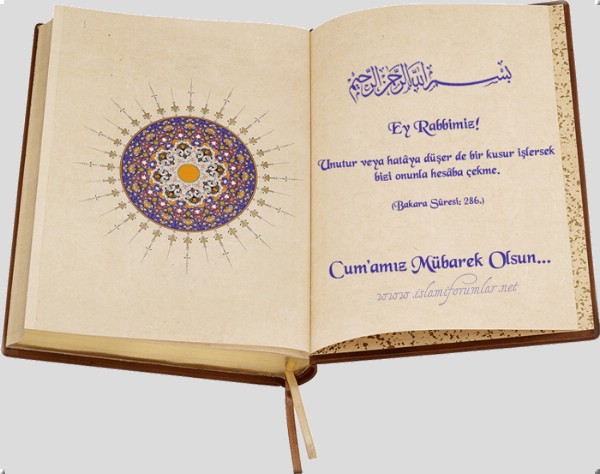 بسم الله الرحمن الرحيم
Ey Rabbimiz!
Unutur veya hatâya düşer de bir kusur işlersek
bizi onunla hesâba çekme.
(Bakara Sûresi; 286.)
Cum'amız Mübarek Olsun...
www.islamiforumlar.net